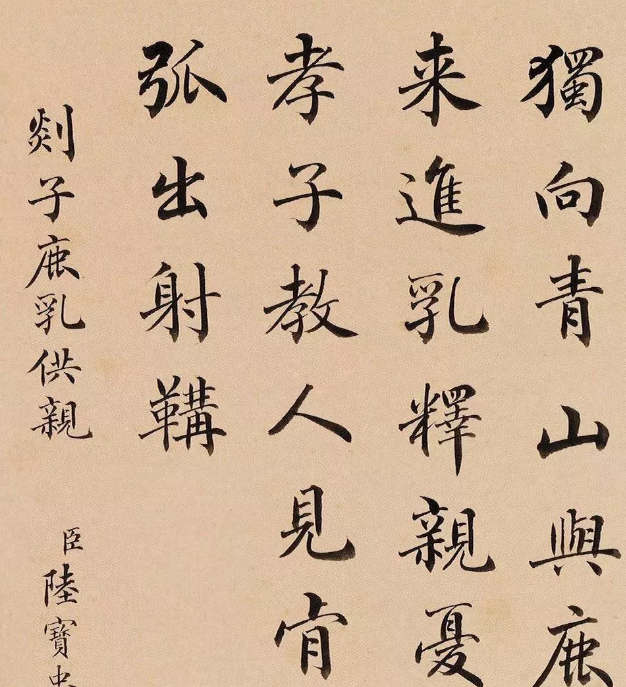 獨向青山與鹿
来進乳釋親憂
孝子教人見肯
弧出射鞲
剡子鹿乳供親
臣陸寶忠